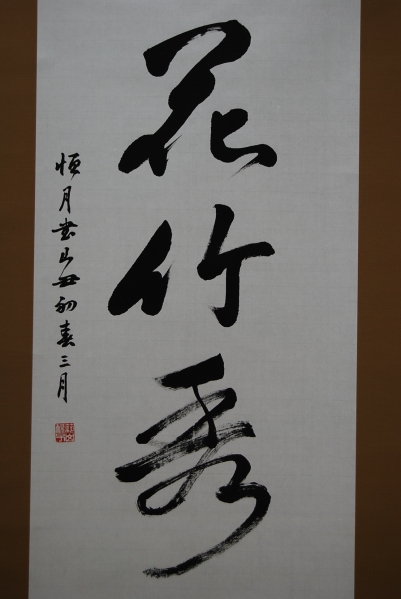 花竹秀
恒月書己丑初春三月